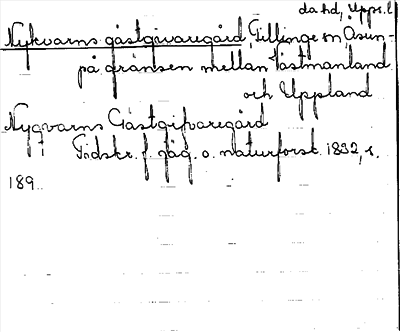 da hd, Upps. l.
Nykvarns gästgivaregård, Tillinge sn, Åsun-
på gränsen mellan Västmanland
och Uppland
Nygvarns Gästgifvaregård
Tidskr. f. jäg. o. naturforsk. 1832, s.
189.